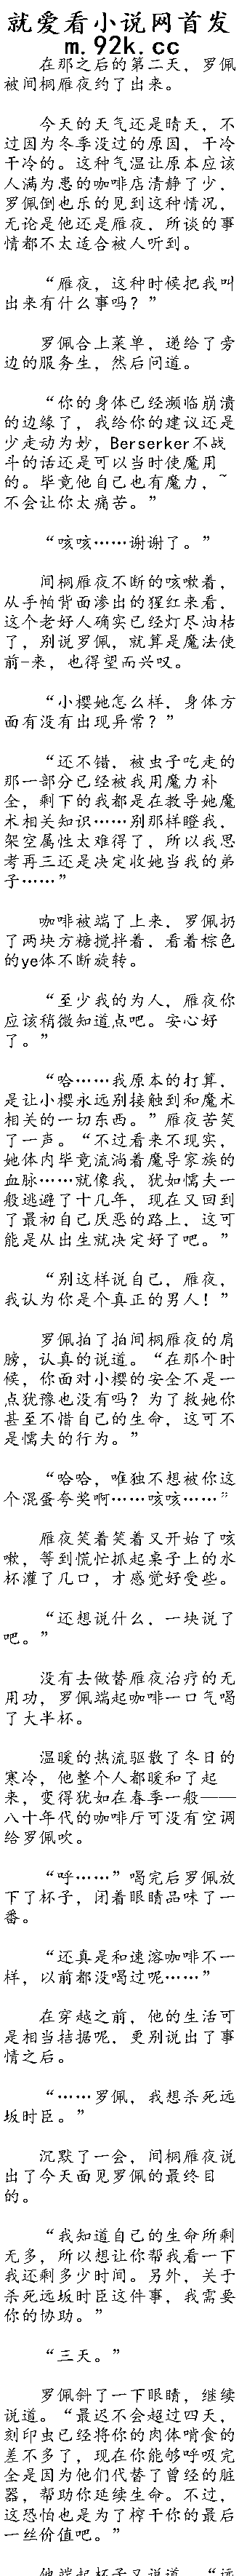 就爱看小说网首发
m.92k.cc
在那之后的第二天，罗佩
被间桐雁夜约了出来。
今天的天气还是晴天，不
过因为冬季没过的原因，干冷
干冷的。这种气温让原本应该
人满为患的咖啡店清静了少，
罗佩倒也乐的见到这种情况，
无论是他还是雁夜，所谈的事
情都不太适合被人听到。
“雁夜，这种时候把我叫
出来有什么事吗？”
罗佩合上菜单，递给了旁
边的服务生，然后问道。
“你的身体已经濒临崩溃
的边缘了，我给你的建议还是
少走动为妙，Berserker不战
斗的话还是可以当时使魔用
的。毕竟他自己也有魔力，~
不会让你太痛苦。”
“咳咳……谢谢了。”
间桐雁夜不断的咳嗽着，
从手帕背面渗出的猩红来看，
这个老好人确实已经灯尽油枯
了，别说罗佩，就算是魔法使
前-来，也得望而兴叹。
“小樱她怎么样，身体方
面有没有出现异常？”
“还不错，被虫子吃走的
那一部分已经被我用魔力补
全，剩下的我都是在教导她魔
术相关知识……别那样瞪我，
架空属性太难得了，所以我思
考再三还是决定收她当我的弟
子……”
咖啡被端了上来，罗佩扔
了两块方糖搅拌着，看着棕色
的ye体不断旋转。
“至少我的为人，雁夜你
应该稍微知道点吧。安心好
了。”
“哈……我原本的打算，
是让小樱永远别接触到和魔术
相关的一切东西。”雁夜苦笑
了一声。“不过看来不现实，
她体内毕竟流淌着魔导家族的
血脉……就像我，犹如懦夫一
般逃避了十几年，现在又回到
了最初自己厌恶的路上，这可
能是从出生就决定好了吧。”
“别这样说自己，雁夜，
我认为你是个真正的男人！”
罗佩拍了拍间桐雁夜的肩
膀，认真的说道。“在那个时
候，你面对小樱的安全不是一
点犹豫也没有吗？为了救她你
甚至不惜自己的生命，这可不
是懦夫的行为。”
“哈哈，唯独不想被你这
个混蛋夸奖啊……咳咳……”
雁夜笑着笑着又开始了咳
嗽，等到慌忙抓起桌子上的水
杯灌了几口，才感觉好受些。
“还想说什么，一块说了
吧。”
没有去做替雁夜治疗的无
用功，罗佩端起咖啡一口气喝
了大半杯。
温暖的热流驱散了冬日的
寒冷，他整个人都暖和了起
来，变得犹如在春季一般——
八十年代的咖啡厅可没有空调
给罗佩吹。
“呼……”喝完后罗佩放
下了杯子，闭着眼睛品味了一
番。
“还真是和速溶咖啡不一
样，以前都没喝过呢……”
在穿越之前，他的生活可
是相当拮据呢，更别说出了事
情之后。
“……罗佩，我想杀死远
坂时臣。”
沉默了一会，间桐雁夜说
出了今天面见罗佩的最终目
的。
“我知道自己的生命所剩
无多，所以想让你帮我看一下
我还剩多少时间。另外，关于
杀死远坂时臣这件事，我需要
你的协助。”
“三天。”
罗佩斜了一下眼睛，继续
说道。“最迟不会超过四天，
刻印虫已经将你的肉体啃食的
差不多了，现在你能够呼吸完
全是因为他们代替了曾经的脏
器，帮助你延续生命。不过，
这恐怕也是为了榨干你的最后
一丝价值吧。”
他端起杯子又说道，“远